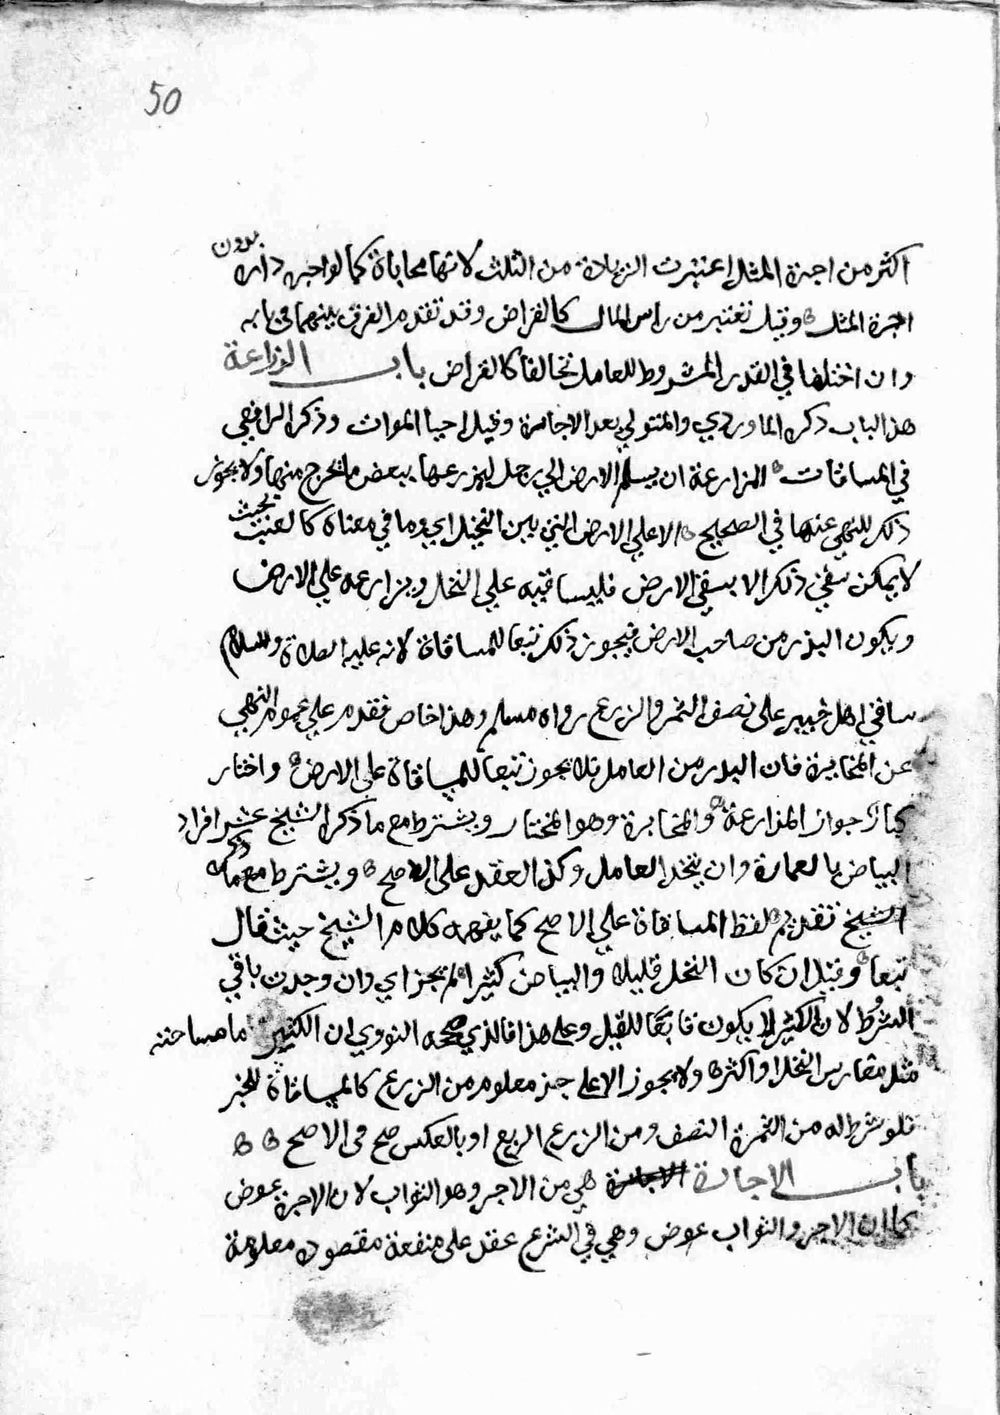 50
اكثر من اجرة المثل اعتبرت الزيادة من الثلث لانها محاباة كما لو اجر داره بدون
اجرة المثل وقيل تعتبر من راس المال كالقراض وقد تقدم الفرق بينهما في بابه
وان اختلفا في القدر المشروط للعامل تحالفا كالقراض باب الزراعة
هذا الباب ذكره الماوردي والمتولي بعد الاجارة وقيل احيا الموات وذكر الرافعي
في المساقات المزارعة ان يسلم الارض الي رجل ليزرعها ببعض ما يخرج منها ولا يجوز
ذلك للنهي عنها في الصحيح الا علي الارض التي بين النخيل اي وما في معناه كالعنب بحيث
لا يمكن سقي ذلك الا بسقي الارض فليساقيه علي النخل ويزارعه علي الارض
ويكون البذر من صاحب الارض فيجوز ذلك تبعا للمساقاة لانه عليه الصلاة والسلام
ساقي اهل خيبر على نصف الثمر والزرع رواه مسلم وهذا خاص فقدم علي عموم النهي
عن المخابرة فان البذر من العامل فلا يجوز تبعا للمساقاة على الارض واختار
جواز المزارعة والمخابرة وهو المختار ويشترط مع ما ذكر الشيخ عسر افراد
البياض بالعمارة وان يتخذ العامل وكذا العقد على الاصح ويشترط مع ذكره
الشيخ تقديم لفظ المساقاة علي الاصح كما يفهمه كلام الشيخ حيث قال
تبعا وقيل ان كان النخل قليلا والبياض كثيرا لم يجز اي وان وجدت باقي
الشروط لان الكثير لا يكون تابعا للقليل وعلى هذا فالذي صححه النووي ان الكثير ما مساحته
مثل مغارس النخل او اكثر ولا يجوز الا على جز معلوم من الزرع كالمساقاة للخبر
فلو شرط له من الثمرة النصف ومن الزرع الربع او بالعكس صح في الاصح
باب الاجارة هي من الاجر وهو الثواب لان الاجرة عوض
كما ان الاجر والثواب عوض وهي في الشرع عقد على منفعة مقصودة معلومة